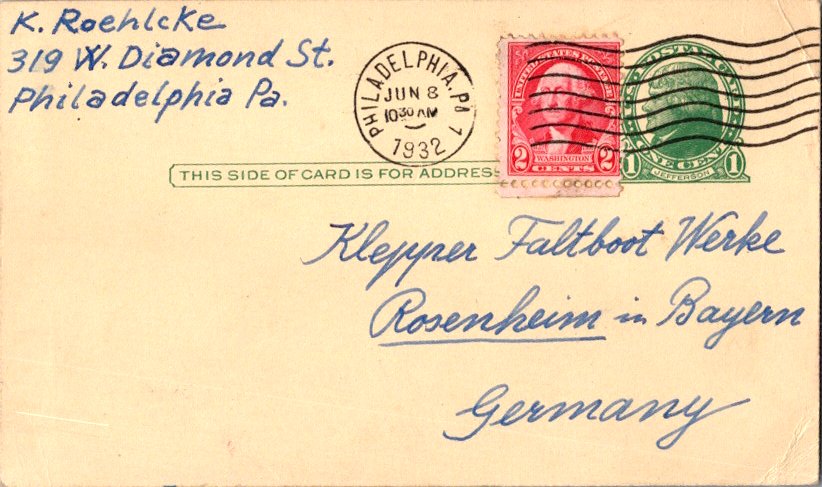 K. Roehlcke
319 W. Diamond St.
Philadelphia Pa.
PHILADELPHIA, PA
JUN 8
10 30 AM
1932
1
UNITED STATES POSTAGE
2 WASHINGTON 2
CENTS
1 ONE CENT 1
JEFFERSON
THIS SIDE OF CARD IS FOR ADDRESS
Klepper Faltboot Werke
Rosenheim in Bayern
Germany